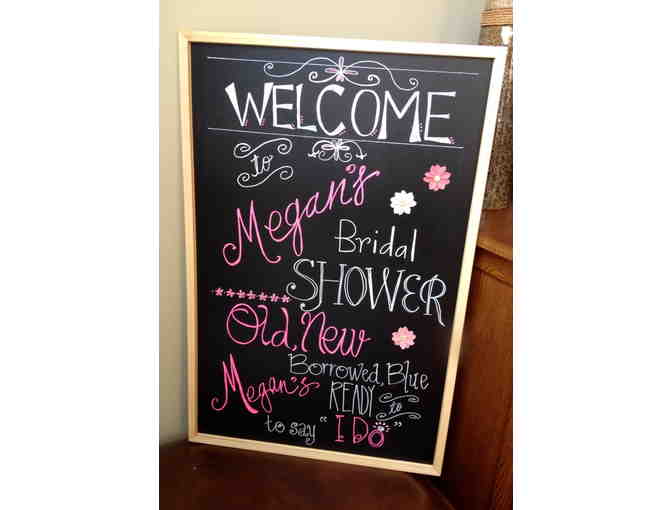 WELCOME
to
Megan's
Bridal
SHOWER
Old, New
Borrowed, Blue
Megan's READY to
to say "I Do"